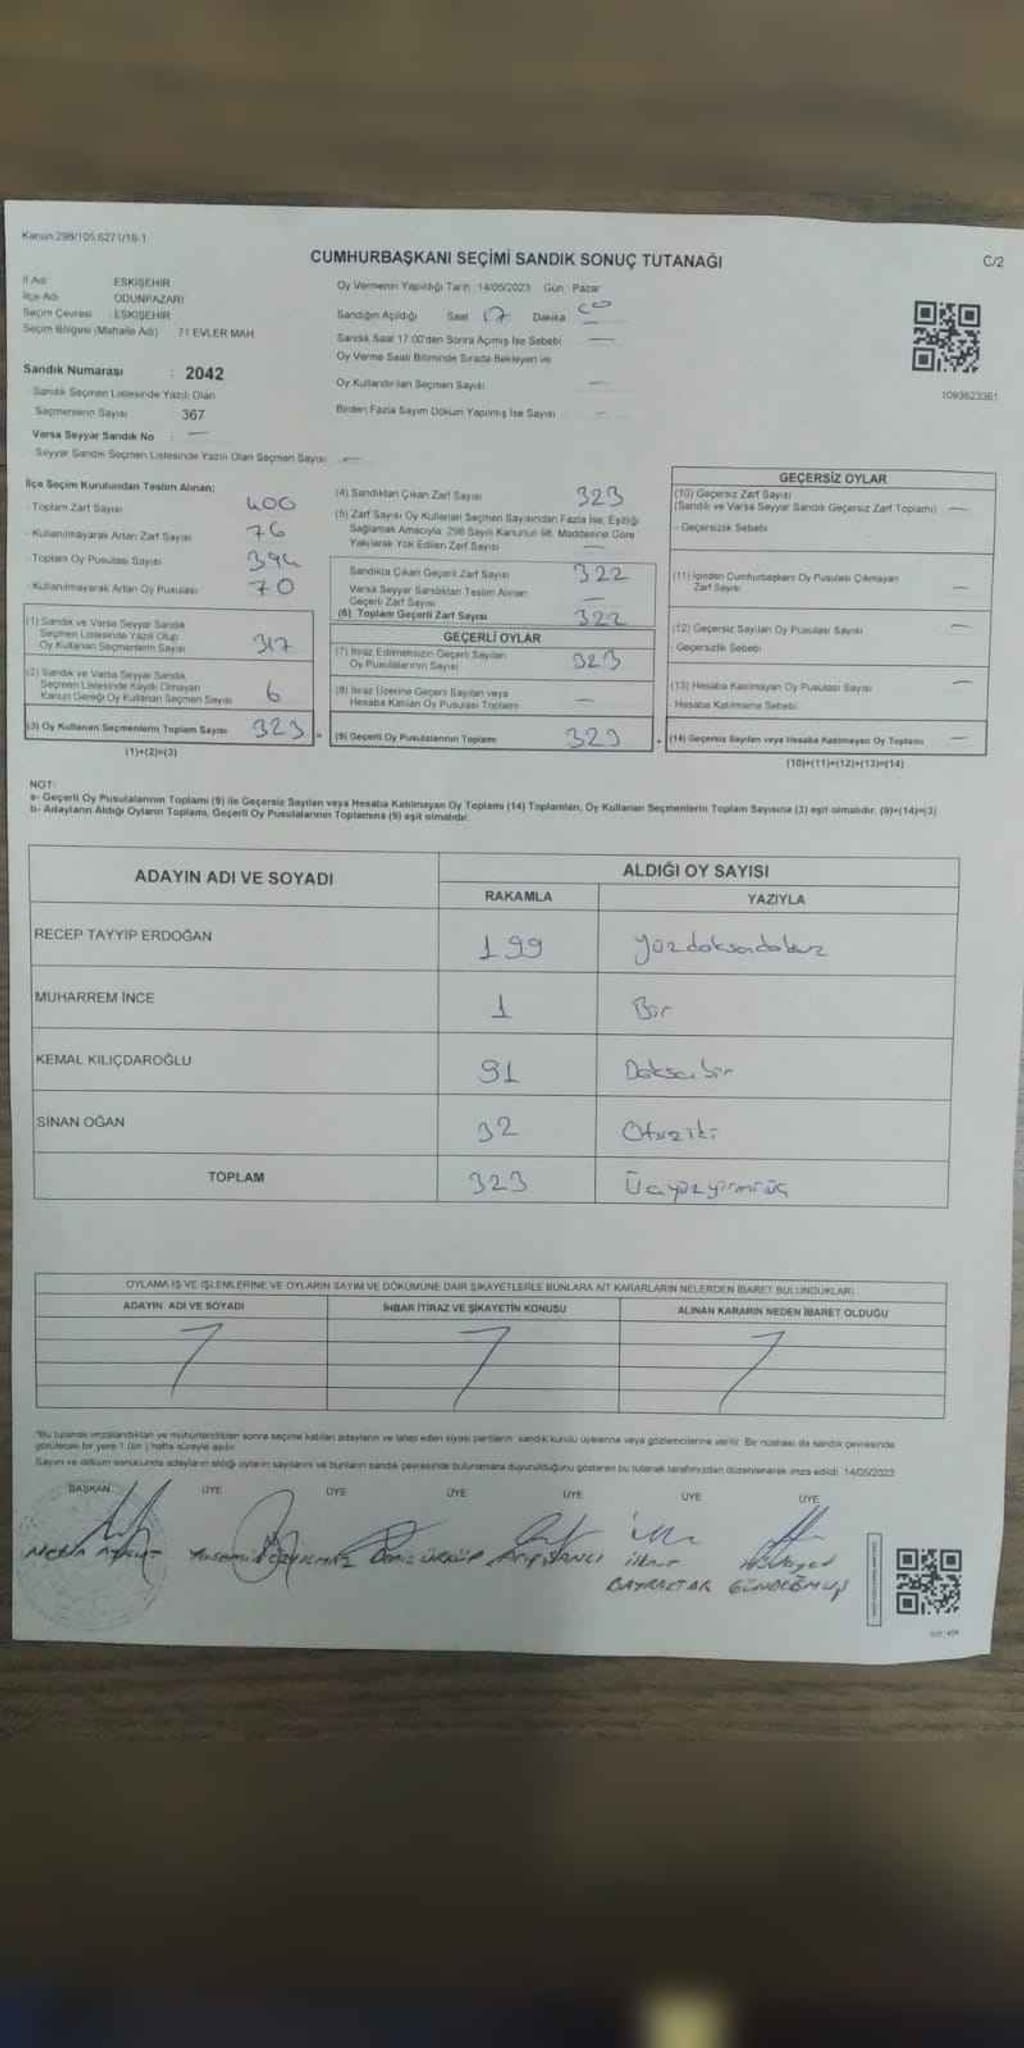 Kanun 298/105,6271/16-1
CUMHURBAŞKANI SEÇİMİ SANDIK SONUÇ TUTANAĞI
C/2
İl Adı ESKİŞEHİR
İlçe Adı ODUNPAZARI
Seçim Çevresi : ESKİŞEHİR
Seçim Bölgesi (Mahalle Adı) 71 EVLER MAH
Sandık Numarası : 2042
Sandık Seçmen Listesinde Yazılı Olan
Seçmenlerin Sayısı 367
Varsa Seyyar Sandık No : —
Seyyar Sandık Seçmen Listesinde Yazılı Olan Seçmen Sayısı —
Oy Vermenin Yapıldığı Tarih 14/05/2023 Gün Pazar
Sandığın Açıldığı Saat 17 Dakika 00
Sandık Saat 17.00'den Sonra Açılmış İse Sebebi —
Oy Verme Saati Bitiminde Sırada Bekleyen ve
Oy Kullandırılan Seçmen Sayısı —
Birden Fazla Sayım Döküm Yapılmış İse Sayısı —
1093623361
İlçe Seçim Kurulundan Teslim Alınan;
- Toplam Zarf Sayısı 400
- Kullanılmayarak Artan Zarf Sayısı 76
- Toplam Oy Pusulası Sayısı 394
- Kullanılmayarak Artan Oy Pusulası 70
(1) Sandık ve Varsa Seyyar Sandık
Seçmen Listesinde Yazılı Olup
Oy Kullanan Seçmenlerin Sayısı 317
(2) Sandık ve Varsa Seyyar Sandık
Seçmen Listesinde Kayıtlı Olmayan
Kanun Gereği Oy Kullanan Seçmen Sayısı 6
(3) Oy Kullanan Seçmenlerin Toplam Sayısı 323
(1)+(2)=(3)
(4) Sandıktan Çıkan Zarf Sayısı 323
(5) Zarf Sayısı Oy Kullanan Seçmen Sayısından Fazla İse, Eşitliği
Sağlamak Amacıyla, 298 Sayılı Kanunun 98. Maddesine Göre
Yakılarak Yok Edilen Zarf Sayısı —
Sandıkta Çıkan Geçerli Zarf Sayısı 322
Varsa Seyyar Sandıktan Teslim Alınan
Geçerli Zarf Sayısı —
(6) Toplam Geçerli Zarf Sayısı 322
GEÇERLİ OYLAR
(7) İtiraz Edilmeksizin Geçerli Sayılan
Oy Pusulalarının Sayısı 323
(8) İtiraz Üzerine Geçerli Sayılan veya
Hesaba Katılan Oy Pusulası Toplamı —
(9) Geçerli Oy Pusulalarının Toplamı 323
GEÇERSİZ OYLAR
(10) Geçersiz Zarf Sayısı
(Sandık ve Varsa Seyyar Sandık Geçersiz Zarf Toplamı) —
- Geçersizlik Sebebi
(11) İçinden Cumhurbaşkanı Oy Pusulası Çıkmayan
Zarf Sayısı —
(12) Geçersiz Sayılan Oy Pusulası Sayısı —
- Geçersizlik Sebebi
(13) Hesaba Katılmayan Oy Pusulası Sayısı —
- Hesaba Katılmama Sebebi
(14) Geçersiz Sayılan veya Hesaba Katılmayan Oy Toplamı —
(10)+(11)+(12)+(13)=(14)
NOT:
a- Geçerli Oy Pusulalarının Toplamı (9) ile Geçersiz Sayılan veya Hesaba Katılmayan Oy Toplamı (14) Toplamları, Oy Kullanan Seçmenlerin Toplam Sayısına (3) eşit olmalıdır. (9)+(14)=(3)
b- Adayların Aldığı Oyların Toplamı, Geçerli Oy Pusulalarının Toplamına (9) eşit olmalıdır.
ADAYIN ADI VE SOYADI ALDIĞI OY SAYISI
RAKAMLA YAZIYLA
RECEP TAYYİP ERDOĞAN 199 yüzdoksandokuz
MUHARREM İNCE 1 Bir
KEMAL KILIÇDAROĞLU 91 Doksanbir
SİNAN OĞAN 32 Otuziki
TOPLAM 323 Üçyüzyirmiüç
OYLAMA İŞ VE İŞLEMLERİNE VE OYLARIN SAYIM VE DÖKÜMÜNE DAİR ŞİKAYETLERLE BUNLARA AİT KARARLARIN NELERDEN İBARET BULUNDUKLARI
ADAYIN ADI VE SOYADI İHBAR İTİRAZ VE ŞİKAYETİN KONUSU ALINAN KARARIN NEDEN İBARET OLDUĞU
*Bu tutanak imzalandıktan ve mühürlendikten sonra seçime katılan adayların ve talep eden siyasi partilerin sandık kurulu üyelerine veya gözlemcilerine verilir. Bir nüshası da sandık çevresinde
görülecek bir yere 1 (bir) hafta süreyle asılır.
Sayım ve döküm sonucunda adayların aldığı oyların sayılarını ve bunların sandık çevresinde bulunanlara duyurulduğunu gösteren bu tutanak tarafımızdan düzenlenerek imza edildi. 14/05/2023
BAŞKAN ÜYE ÜYE ÜYE ÜYE ÜYE ÜYE
BAYRAKTAR GÜNDOĞMUŞ